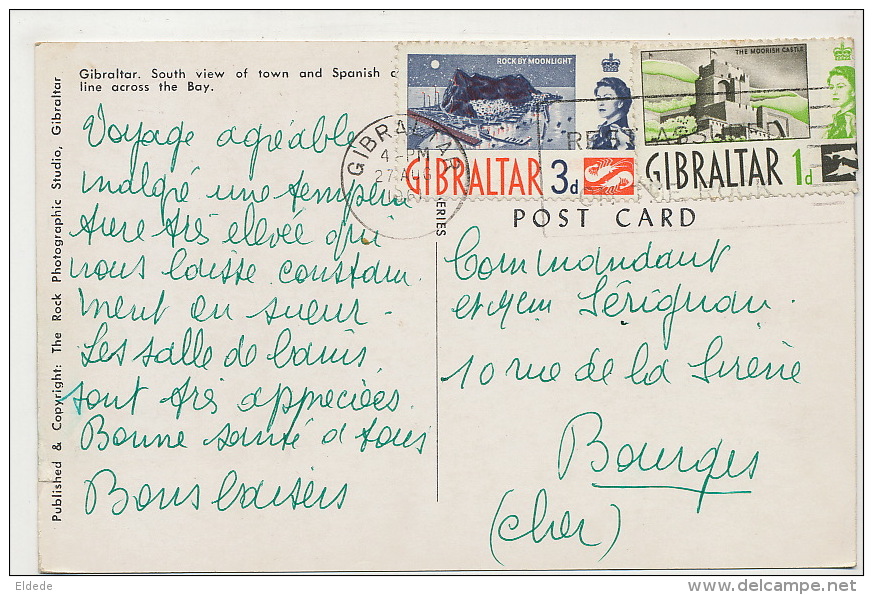 Gibraltar. South view of town and Spanish
line across the Bay.
Published & Copyright: The Rock Photographic Studio, Gibraltar
Voyage agréable
malgré une tempéra
ture très elevée qui
nous laisse constam
ment en sueur -
Les salle de bains
sont très appreciées.
Bonne santé à tous
Bons baisers
ROCK BY MOONLIGHT
GIBRALTAR 3d
THE MOORISH CASTLE
GIBRALTAR 1d
GIBRALTAR
4 - PM
27 AUG
SERIES
POST CARD
Commandant
et Mem Sérignan.
10 rue de la Sirène
Bourges
(Cher)
Eldede
www.delcampe.net